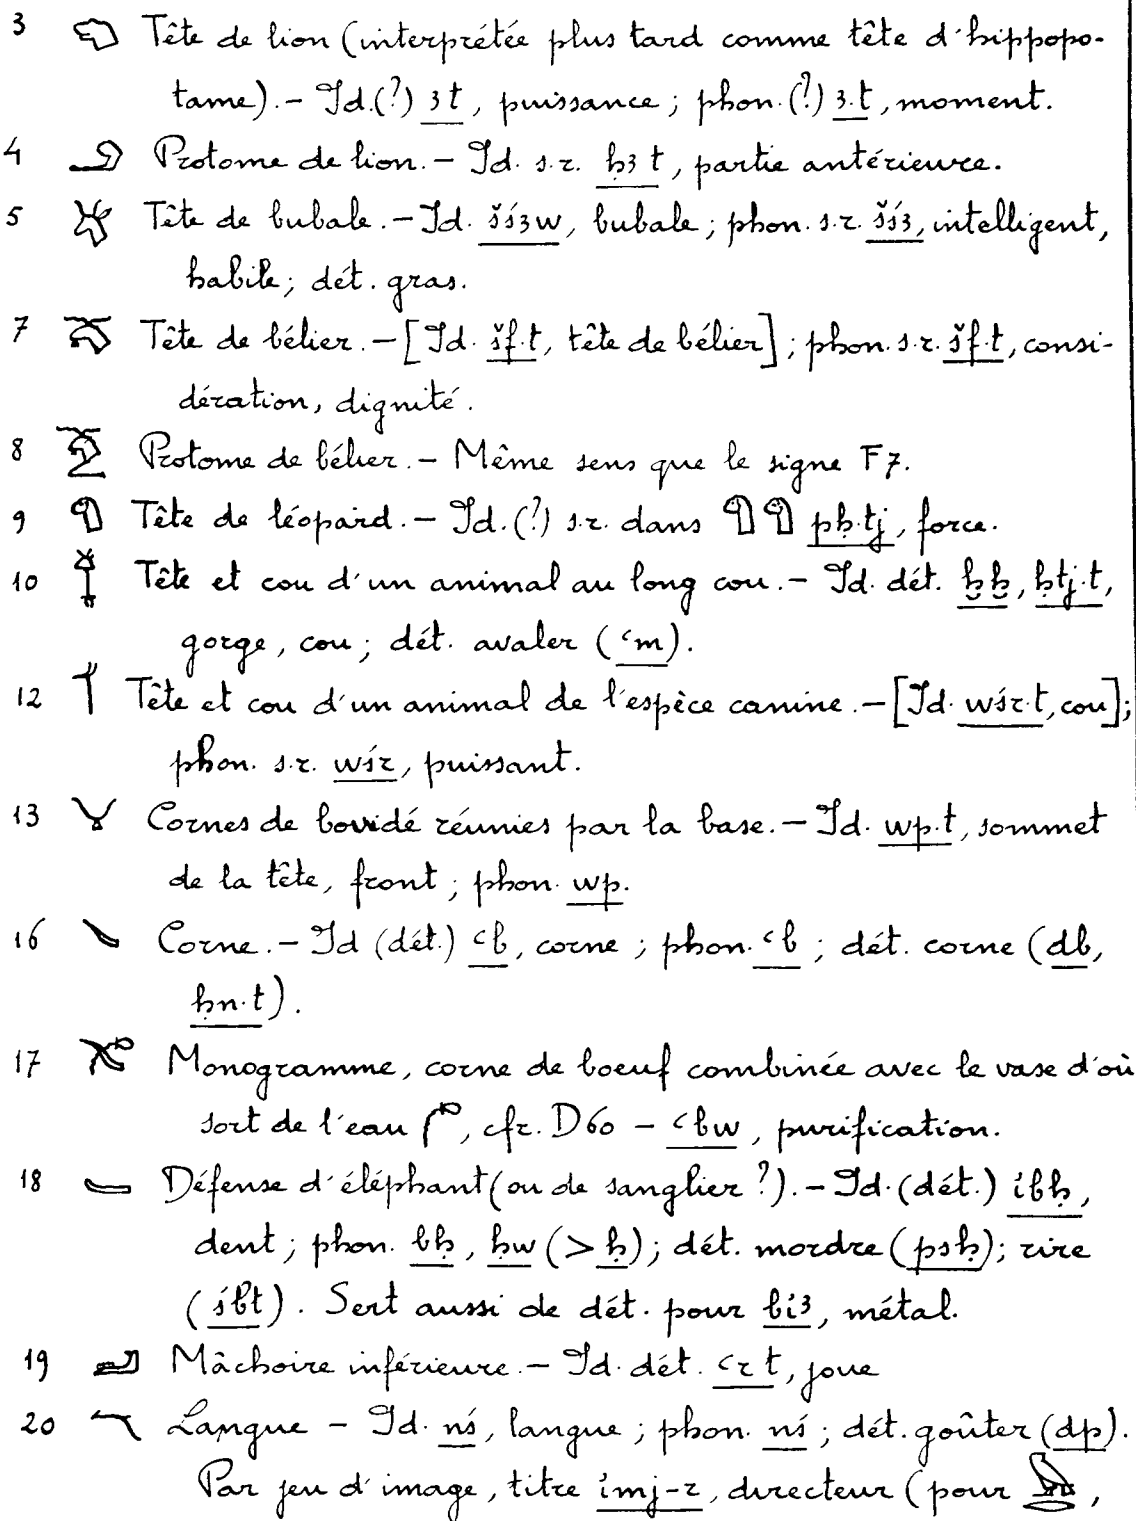 3 𓄂 Tête de lion (interprétée plus tard comme tête d'hippopo-
tame). – Id.(?) 3t, puissance; phon.(?) 3.t, moment.
4 𓄂 Protome de lion. – Id. s.r. ḥ3t, partie antérieure.
5 𓄃 Tête de bubale. – Id. šś3w, bubale; phon. s.r. šś3, intelligent,
habile; dét. gras.
7 𓄅 Tête de bélier. – [Id. šf.t, tête de bélier]; phon. s.r. šf.t, consi-
dération, dignité.
8 𓄆 Protome de bélier. – Même sens que le signe F7.
9 𓄇 Tête de léopard. – Id.(?) s.r. dans 𓄇𓄇 pḥ.tj, force.
10 𓄊 Tête et cou d'un animal au long cou. – Id. dét. ḫḫ, ḥtj.t,
gorge, cou; dét. avaler (ʿm).
12 𓄊 Tête et cou d'un animal de l'espèce canine. – [Id. wśr.t, cou];
phon. s.r. wśr, puissant.
13 𓄋 Cornes de bovidé réunies par la base. – Id. wp.t, sommet
de la tête, front; phon. wp.
16 𓄏 Corne. – Id (dét.) ʿb, corne; phon. ʿb; dét. corne (db,
ḥn.t).
17 𓄐 Monogramme, corne de boeuf combinée avec le vase d'où
sort de l'eau, cfr. D60 – ʿbw, purification.
18 𓄑 Défense d'éléphant (ou de sanglier ?). – Id. (dét.) ỉbḥ,
dent; phon. bḥ, ḥw (> ḥ); dét. mordre (psḥ); rire
(śbt). Sert aussi de dét. pour bỉ3, métal.
19 𓄒 Mâchoire inférieure. – Id. dét. ʿrt, joue
20 𓄓 Langue – Id. nś, langue; phon. nś; dét. goûter (dp).
Par jeu d'image, titre ỉmj-r, directeur (pour 𓅓𓂋,